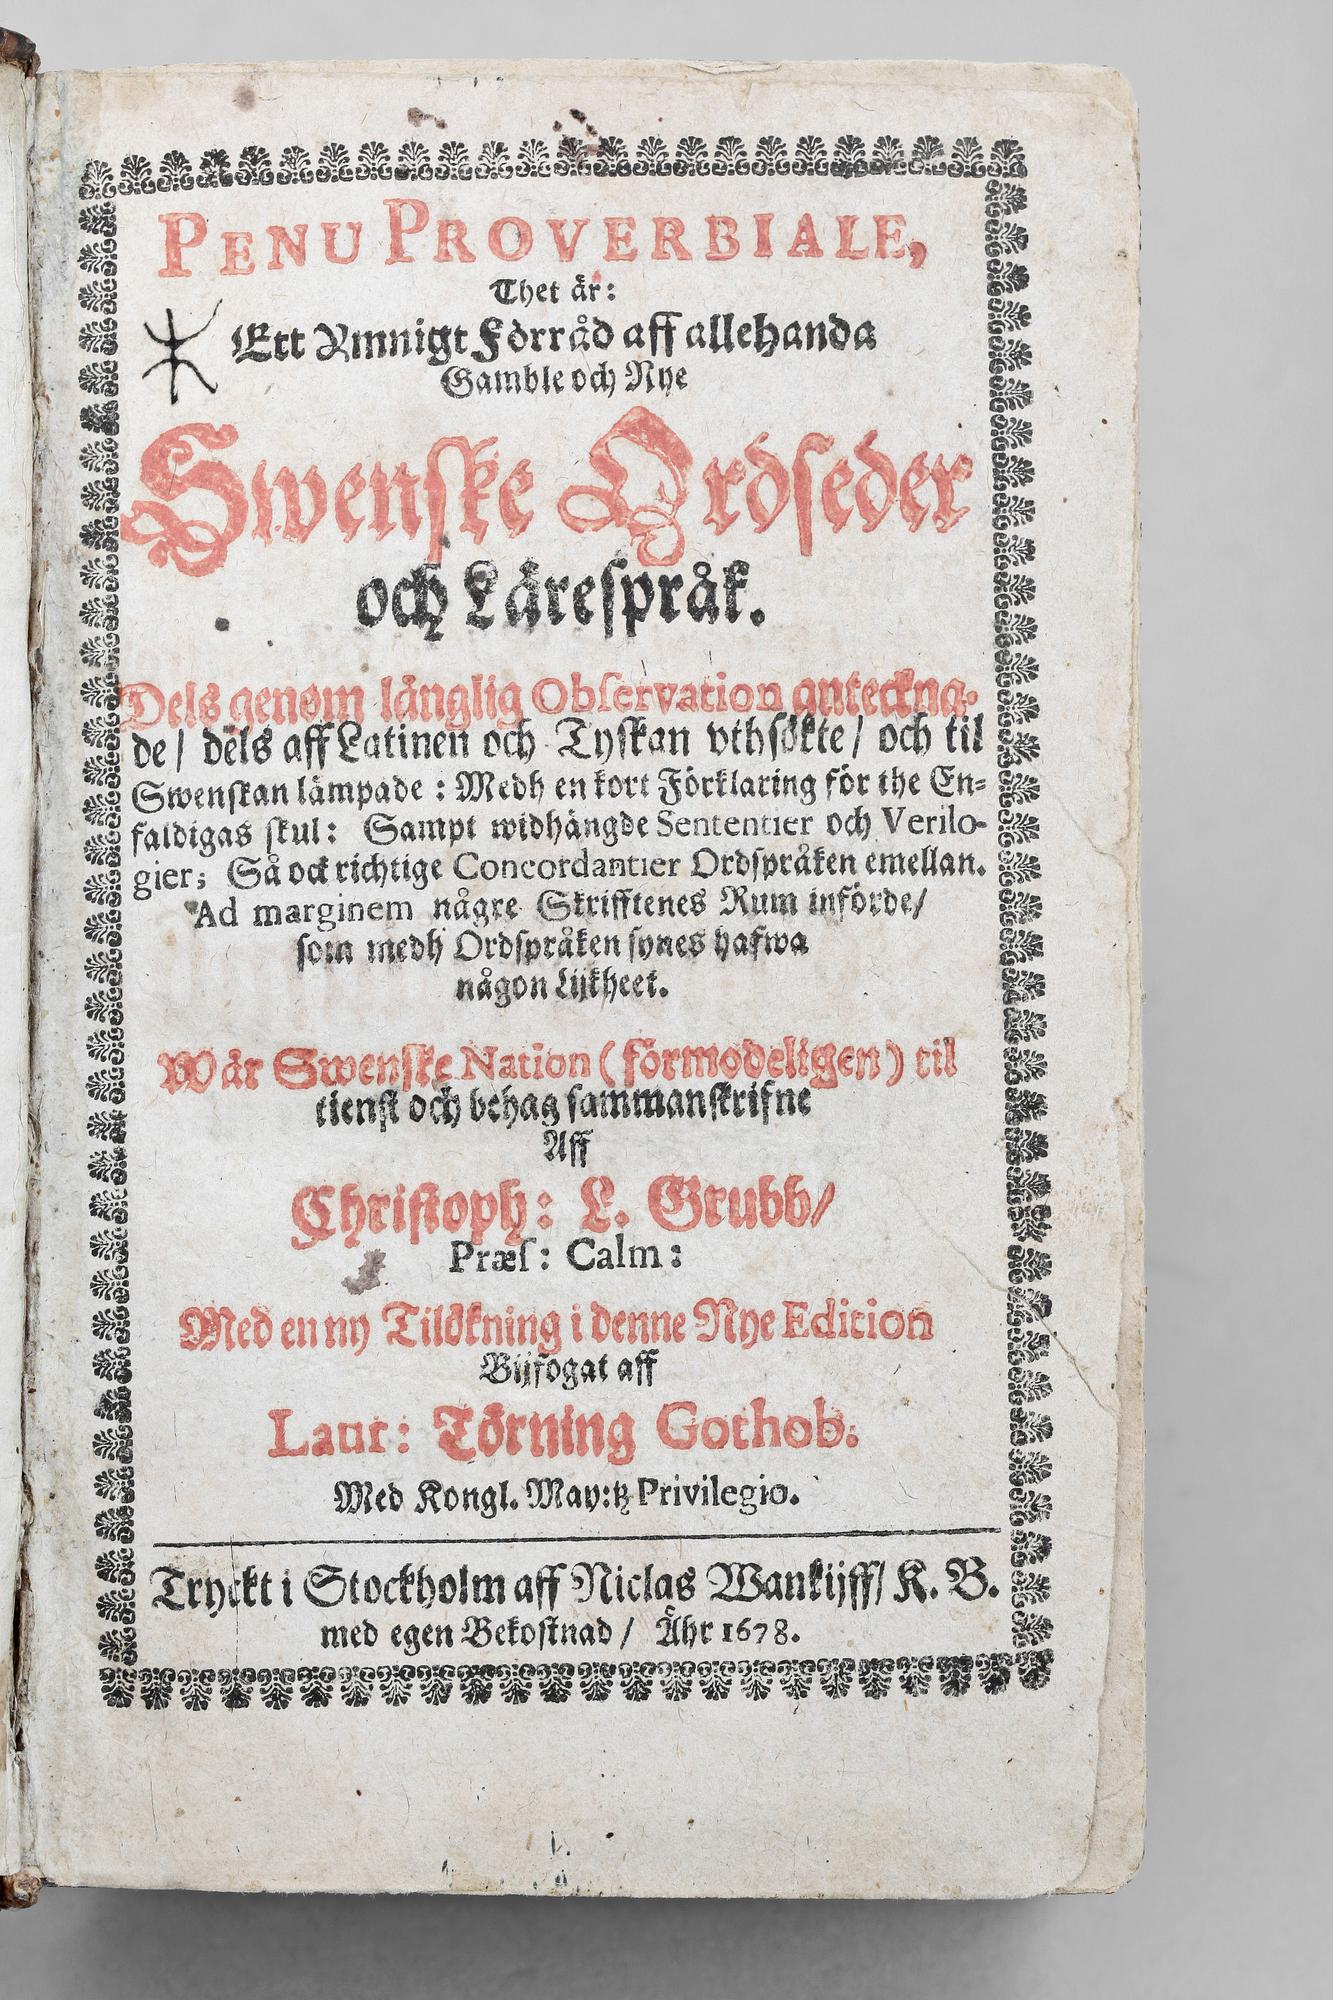 PENU PROVERBIALE,
Thet är:
Ett Ymnigt Förråd aff allehanda
Gamble och Nye
Swenske Ordseder
och Lärespråk.
Dels genom långlig Observation anteckna-
de / dels aff Latinen och Tyskan vthsökte / och til
Swenskan lämpade: Medh en kort Förklaring för the En-
faldigas skul: Sampt widhängde Sententier och Verilo-
gier; Så ock richtige Concordantier Ordspråken emellan.
Ad marginem någre Skrifftenes Rum införde /
som medh Ordspråken synes hafwa
någon Lijkheet.
Wår Swenske Nation (förmodeligen) til
tienst och behag sammanskrifne
Aff
Christoph: L. Grubb /
Præs: Calm:
Med en ny Tilökning i denne Nye Edition
Bijfogat aff
Laur: Törning Gothob.
Med Kongl. May:tz Privilegio.
Tryckt i Stockholm aff Niclas Wankijff / K. B.
med egen Bekostnad / Åhr 1678.